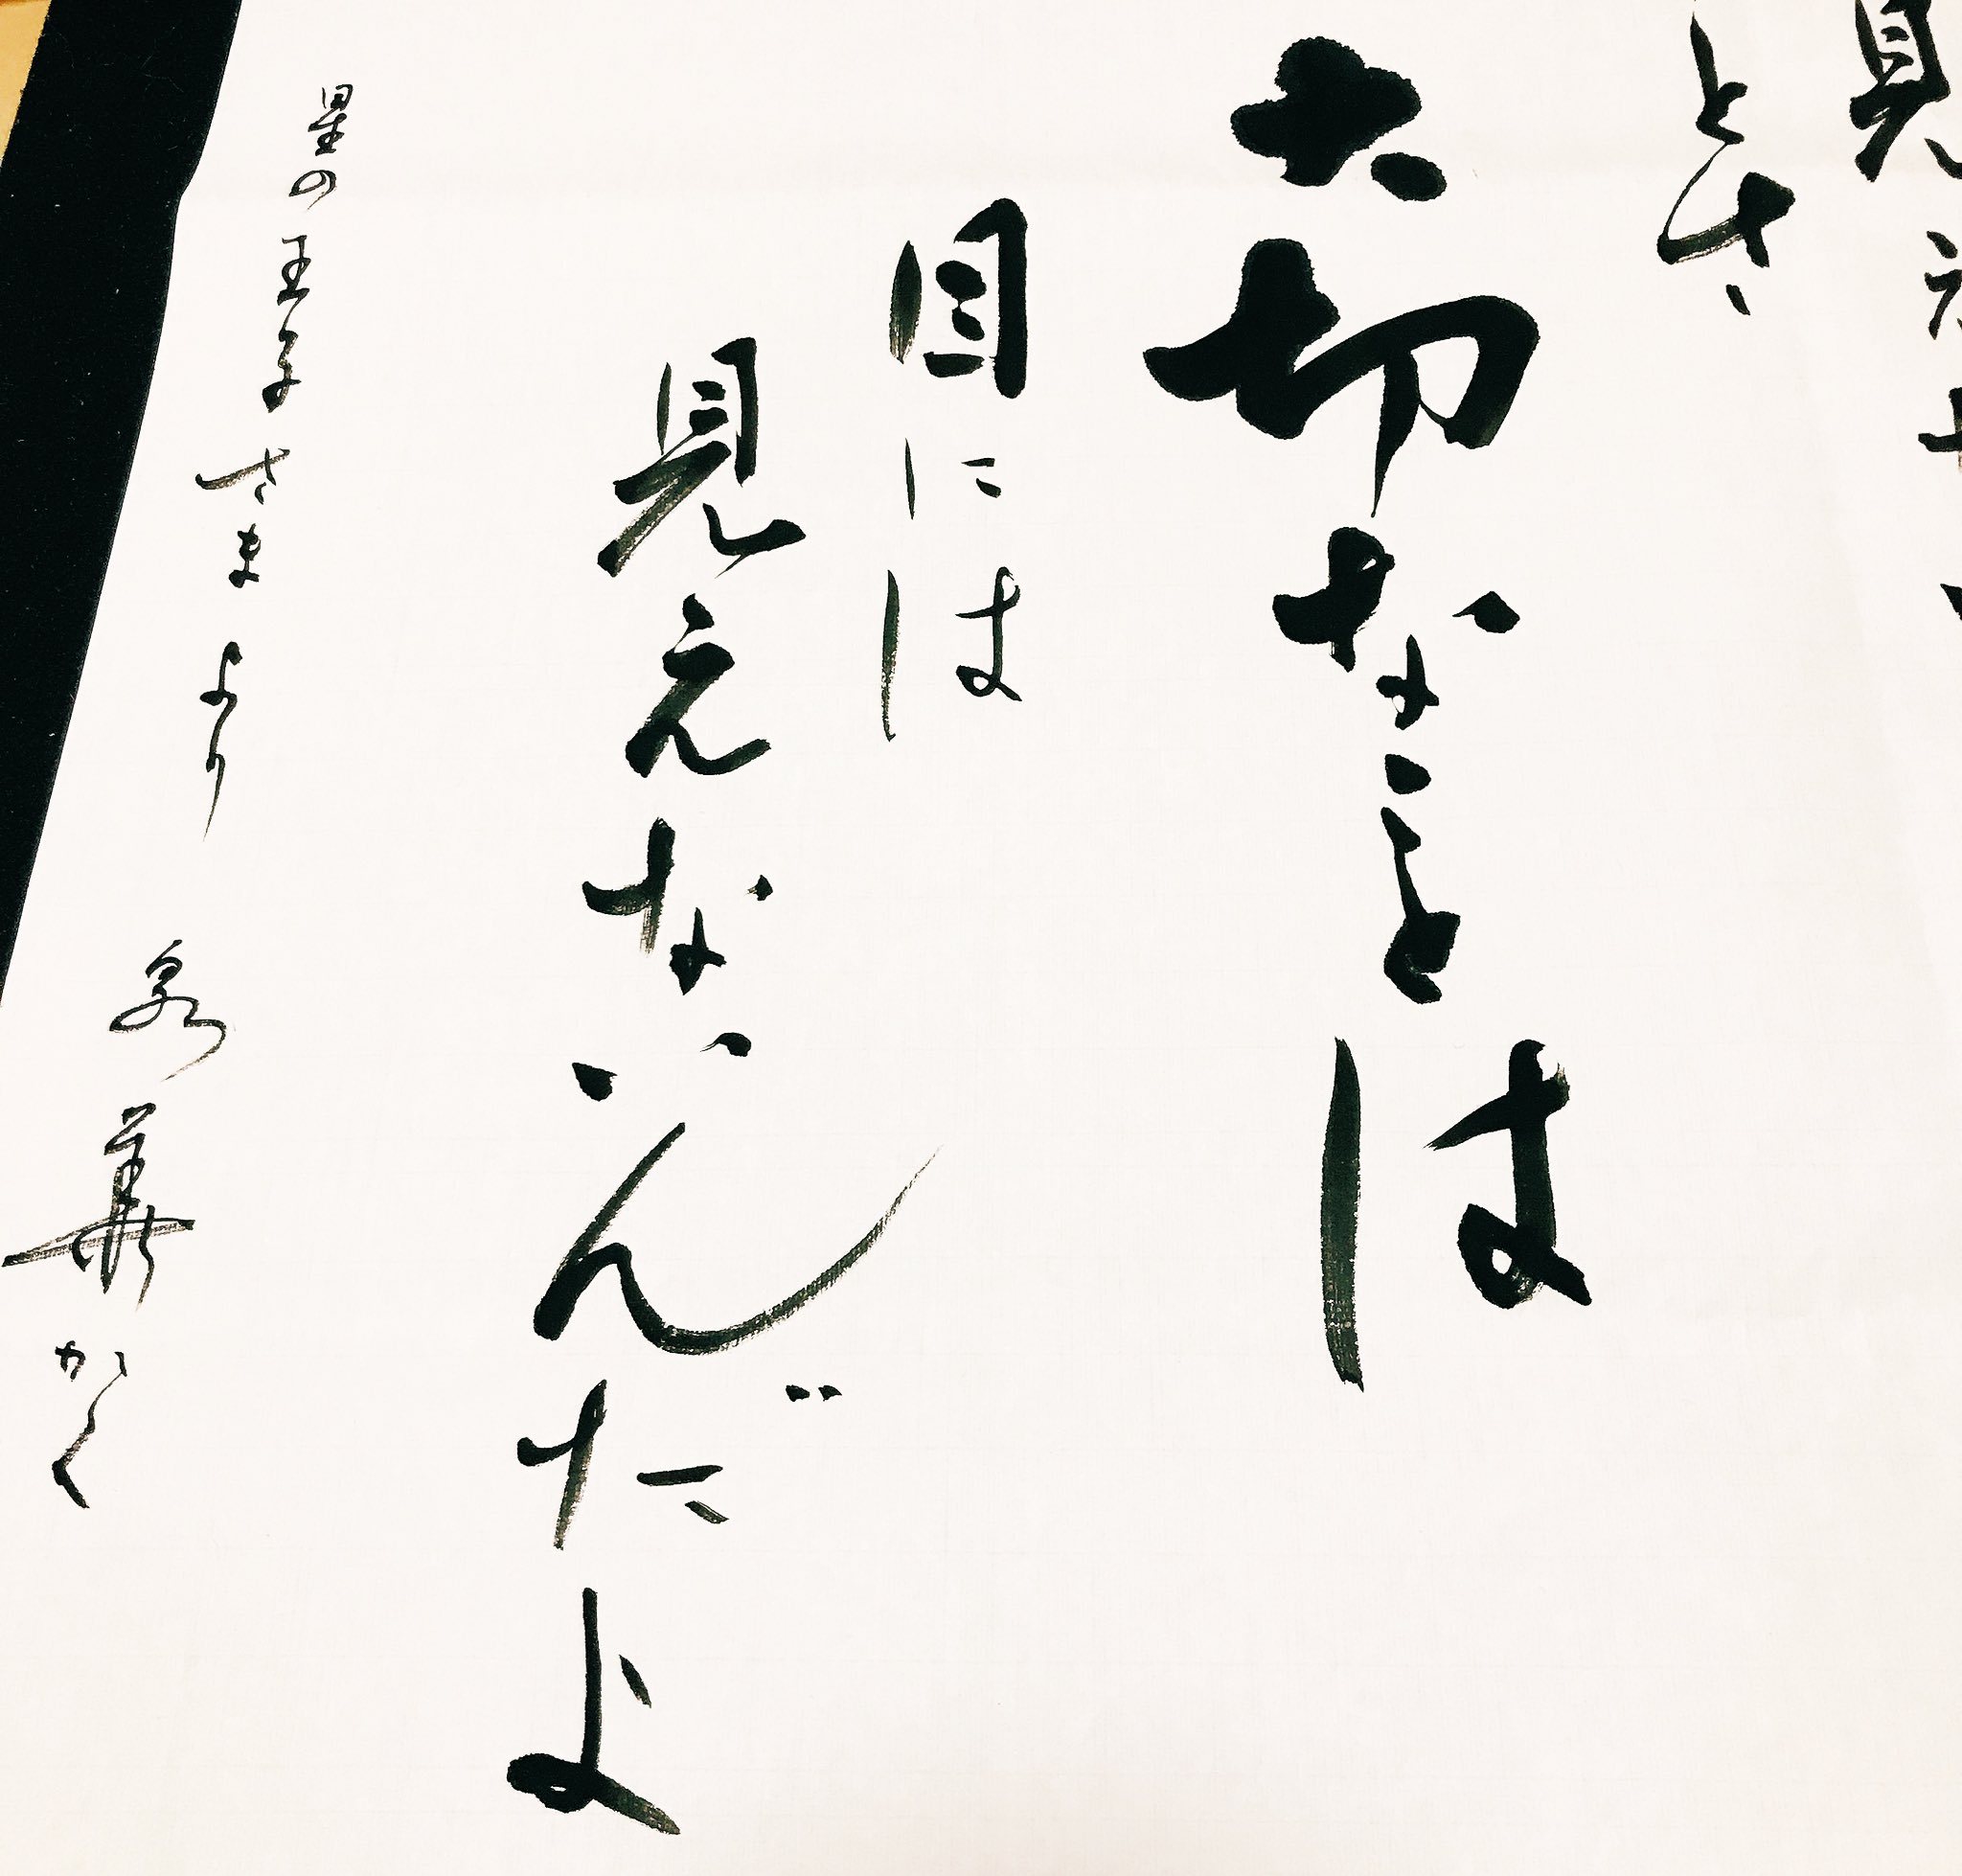 見えない
とさ
大切なことは
目には
見えないんだよ
星の王子さまより 泉華かく